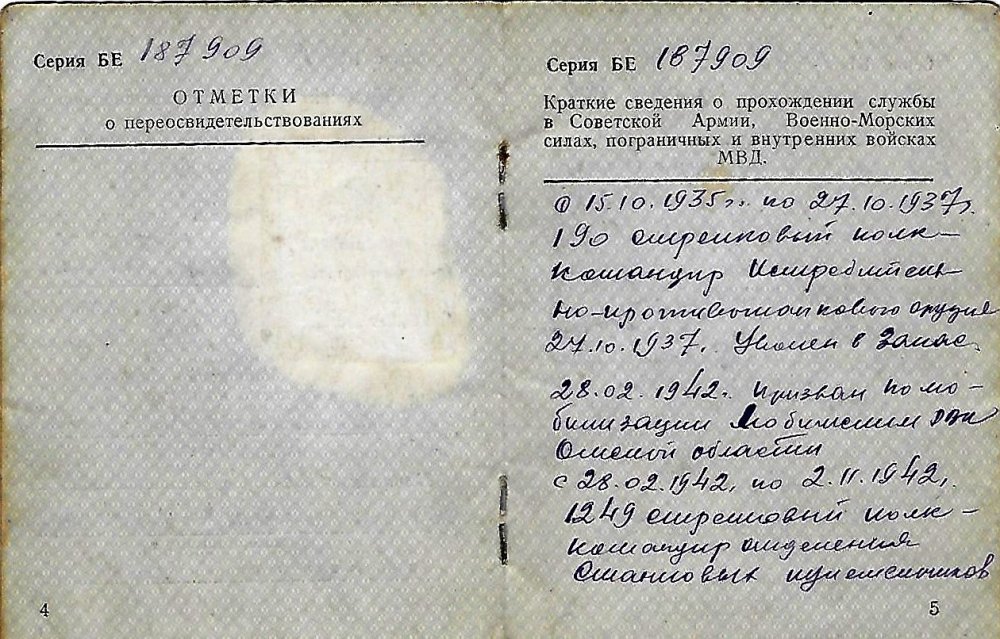 Серия БЕ 187909
ОТМЕТКИ
о переосвидетельствованиях
4
Серия БЕ 187909
Краткие сведения о прохождении службы
в Советской Армии, Военно-Морских
силах, пограничных и внутренних войсках
МВД.
С 15.10.1935г. по 27.10.1937г.
190 стрелковый полк –
командир Истребитель-
но-противотанкового орудия
27.10.1937г. Уволен в запас.
28.02.1942г. призван по мо-
билизации Любинским РВК
Омской области
с 28.02.1942г. по 2.11.1942г.
1249 стрелковый полк –
командир отделения
Станковых пулеметчиков
5